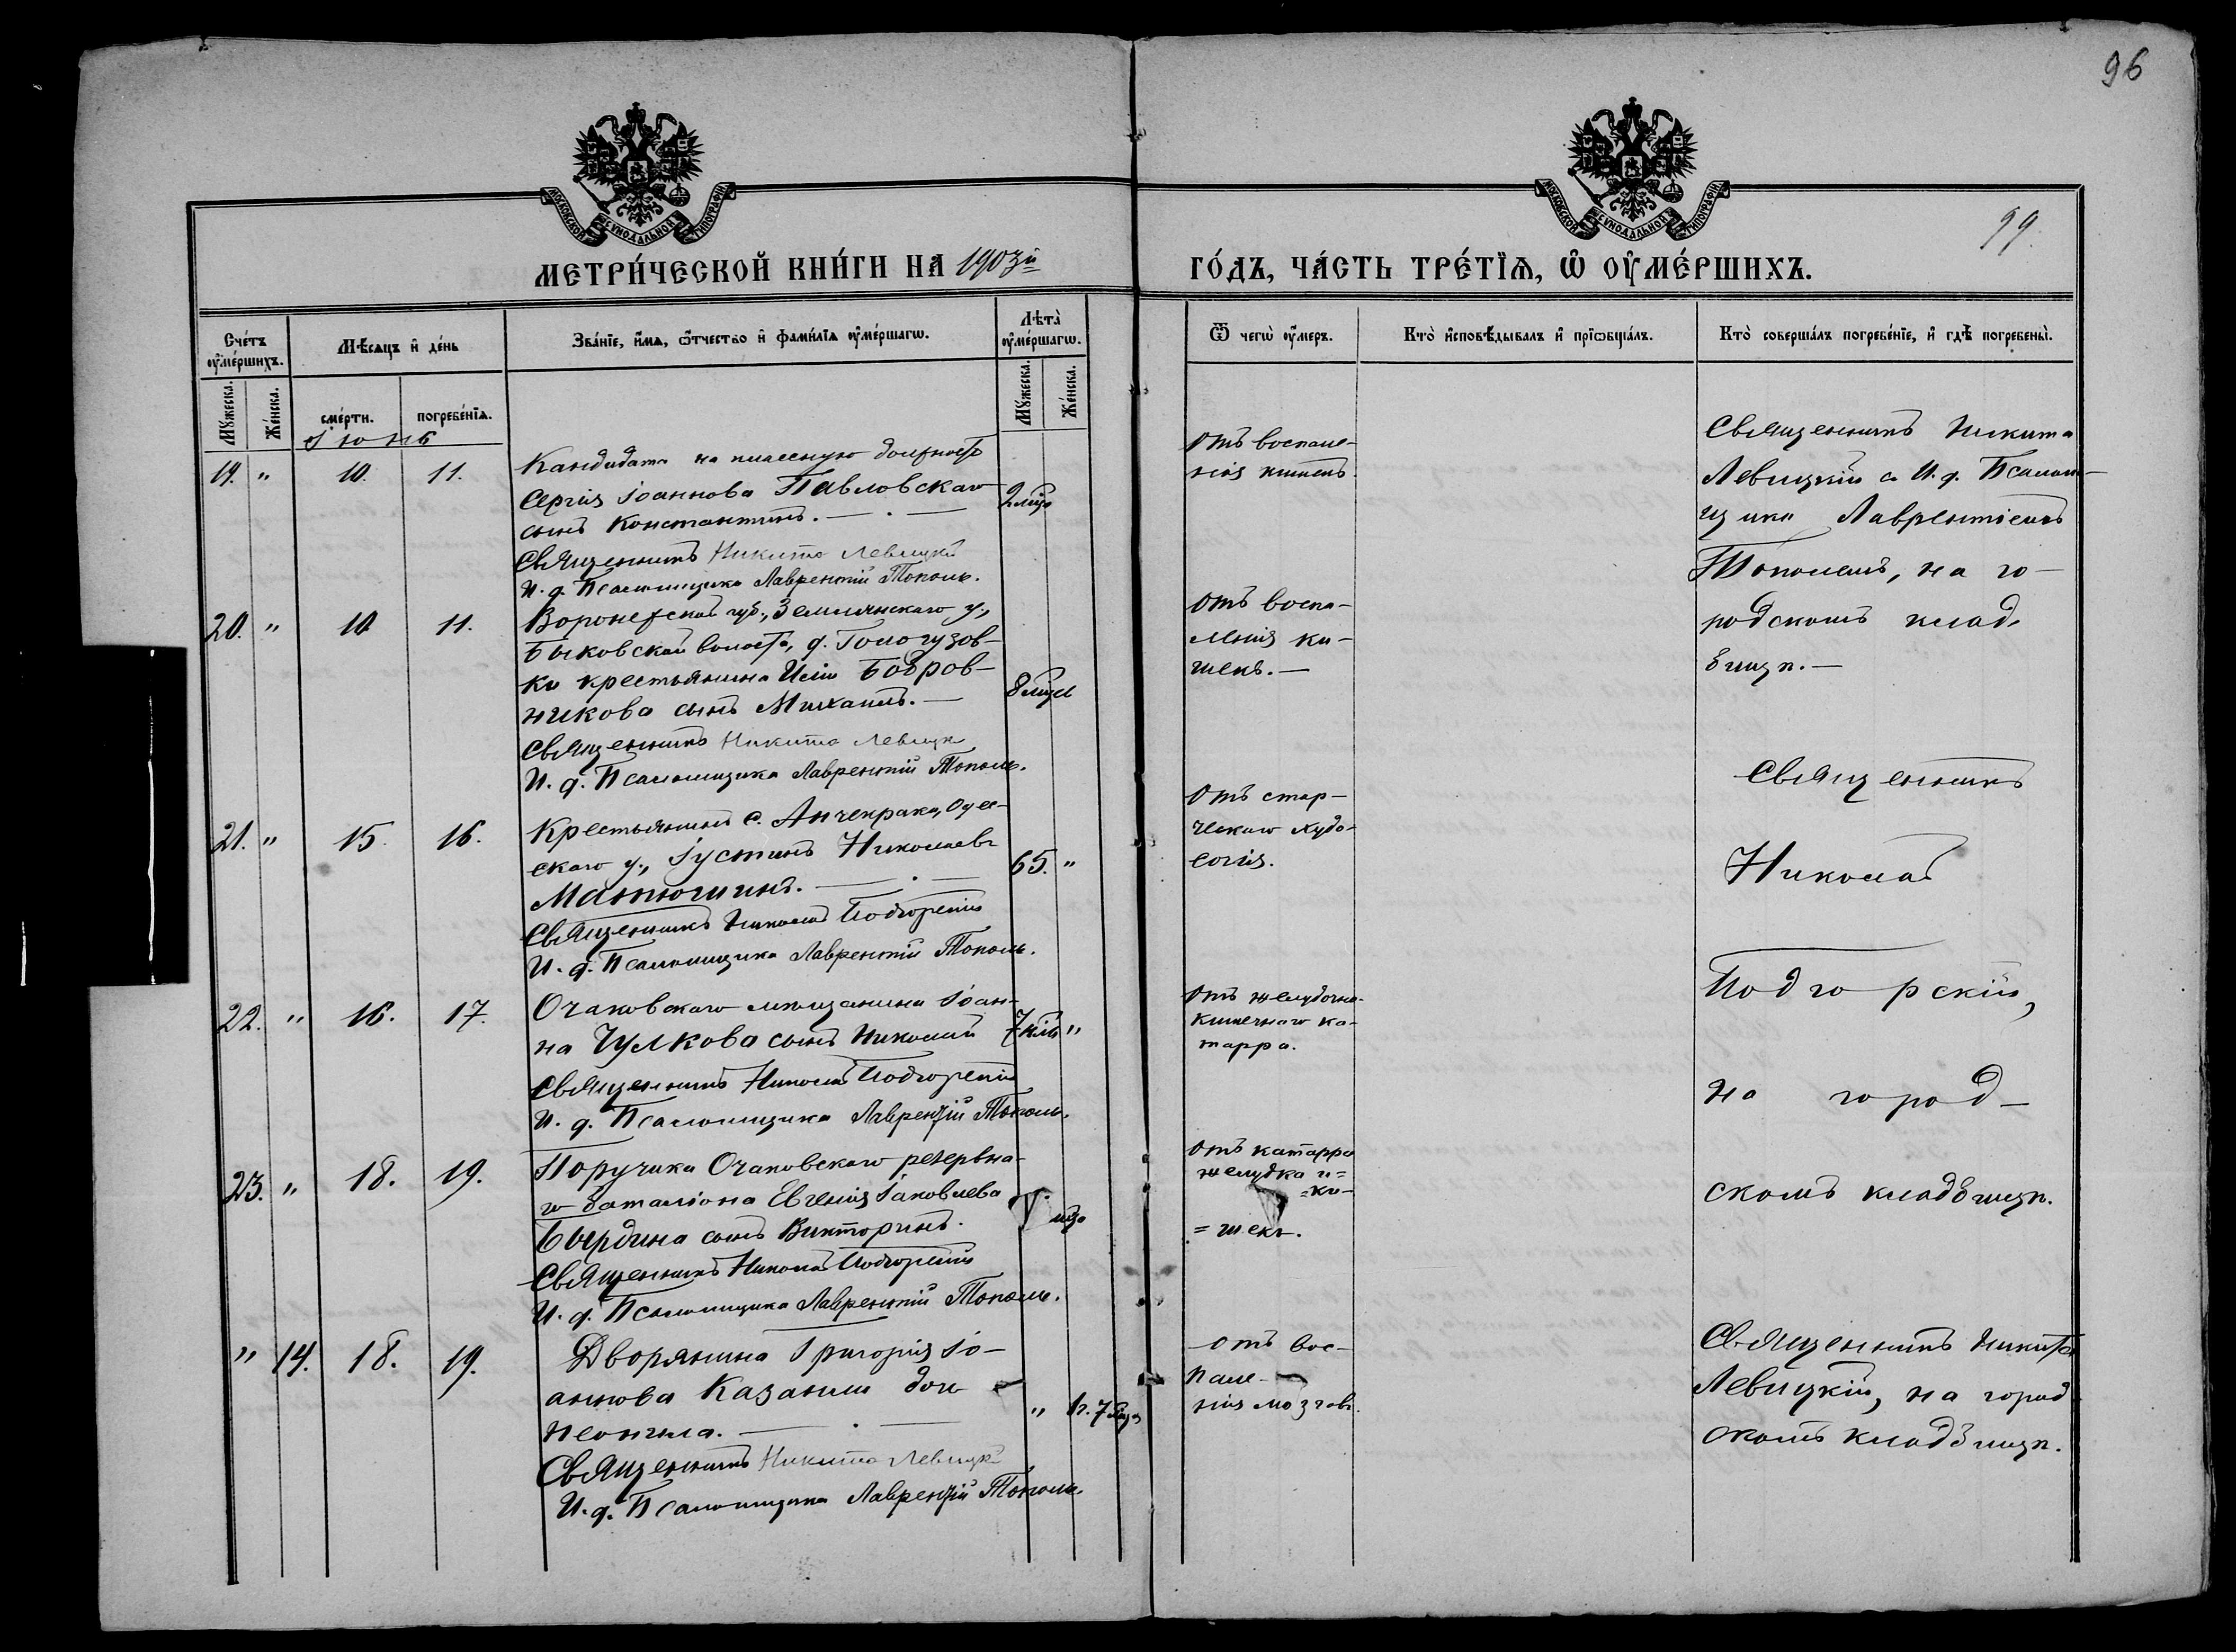 96
99.
МОСКОВСКОЙ СѴНОДАЛЬНОЙ ТИПОГРАФІИ
МОСКОВСКОЙ СѴНОДАЛЬНОЙ ТИПОГРАФІИ
МЕТРИ́ЧЕСКОЙ КНИ́ГИ НА 1903й
ГО́ДЪ, ЧА́СТЬ ТРЕ́ТІѦ, Ѡ ОУ҆МЕ́РШИХЪ.
Сче́тъ оу҆ме́ршихъ.
Мѣ́сѧцъ и҆ де́нь
Зва́нїе, и҆́мѧ, ѻ҆́тчество и҆ фами́лїѧ оу҆ме́ршагѡ.
Лѣта̀ оу҆ме́ршагѡ.
Ѿ чегѡ̀ оу҆́меръ.
Кто̀ и҆сповѣ́дывалъ и҆ прїѡбща́лъ.
Кто̀ соверша́лъ погребе́нїе, и҆ гдѣ̀ погребены̀.
Мꙋ́жеска.
Же́нска.
сме́рти.
погребе́нїѧ.
Мꙋ́жеска.
Же́нска.
Іюнь
19. " 10. 11.
Кандидата на классную должность
Сергія Іоаннова Павловскаго
сынъ Константинъ.
2 мѣс.
Священникъ Никита Левицкій
И. д. Псаломщика Лаврентій Тополь.
Отъ воспале-
нія кишекъ.
Священникъ Никита
Левицкій с И. д. Псалом-
щика Лаврентіемъ
Тополемъ, на го-
родскомъ клад-
бищѣ.
20. " 10. 11.
Воронежской губ., Землянскаго у.,
Быковской волости, д. Гологузов-
ки крестьянина Иліи Бобров-
никова сынъ Михаилъ.
8 мѣс.
Священникъ Никита Левицк
И. д. Псаломщика Лаврентій Тополь.
Отъ воспа-
ленія ки-
шекъ.
21. " 15. 16.
Крестьянинъ с. Анчекрака, Одес-
скаго у., Іустинъ Николаевъ
Матюшинъ.
65. "
Священникъ Николай Подгорскій
И. д. Псаломщика Лаврентій Тополь.
Отъ стар-
ческаго худо-
сочія.
Священникъ
Николай
Подгорскій,
на город-
скомъ кладбищѣ.
22. " 16. 17.
Очаковскаго мѣщанина Іоан-
на Чулкова сынъ Николай
7 "
Священникъ Николай Подгорскій
И. д. Псаломщика Лаврентій Тополь.
Отъ желудочно-
кишечнаго ка-
тарра.
23. " 18. 19.
Поручика Очаковскаго резервна-
го баталіона Евгенія Іаковлева
Бырдина сынъ Викторинъ.
Священникъ Николай Подгорскій
И. д. Псаломщика Лаврентій Тополь.
Отъ катарра
желудка и=
=ки-
=шекъ.
" 14. 18. 19.
Дворянина Григорія Іо-
аннова Казанли дочь
Неонила.
" 1г. 7
Священникъ Никита Левицк
И. д. Псаломщика Лаврентій Тополь.
Отъ вос-
пале-
нія мозговъ.
Священникъ Никита
Левицкій, на город-
скомъ кладбищѣ.